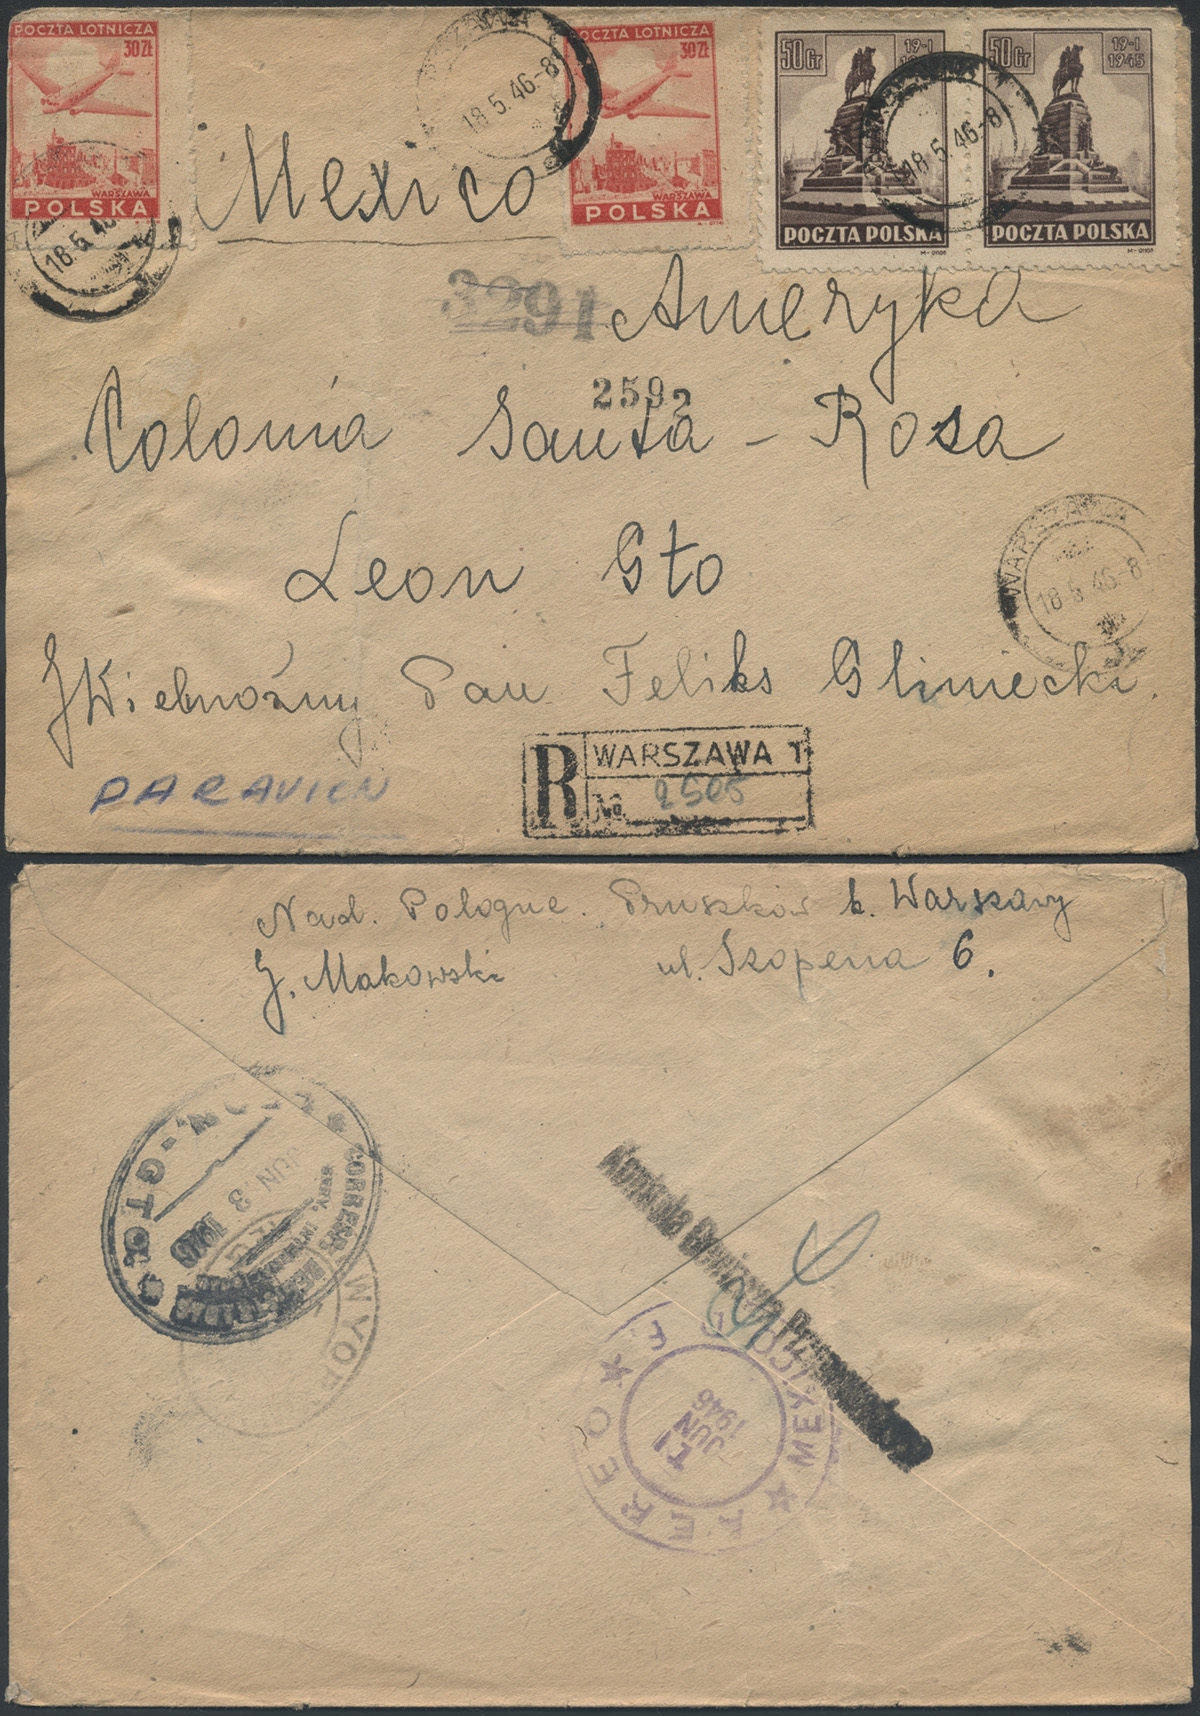 POCZTA LOTNICZA
30 ZŁ
WARSZAWA
POLSKA
18.5.46
WARSZAWA
18.5.46-8
POCZTA LOTNICZA
30 ZŁ
WARSZAWA
POLSKA
50 Gr
19-I
POCZTA POLSKA
18.5.46-8
50 Gr
19-I
1945
POCZTA POLSKA
Mexico
3291
Ameryka
2592
Colonia Santa - Rosa
Leon Gto
WARSZAWA
18.5.46-8
JWielmożny Pan Feliks Gliniecki.
PARAVION
R
WARSZAWA 1
No 2505
Nad. Pologne. Pruszków k. Warszawy
J. Makowski ul. Szopena 6.
CORREOS
GTO.
JUN 3 1946
Komisja Dewizowa
AEREO
MEXICO
JUN
1946